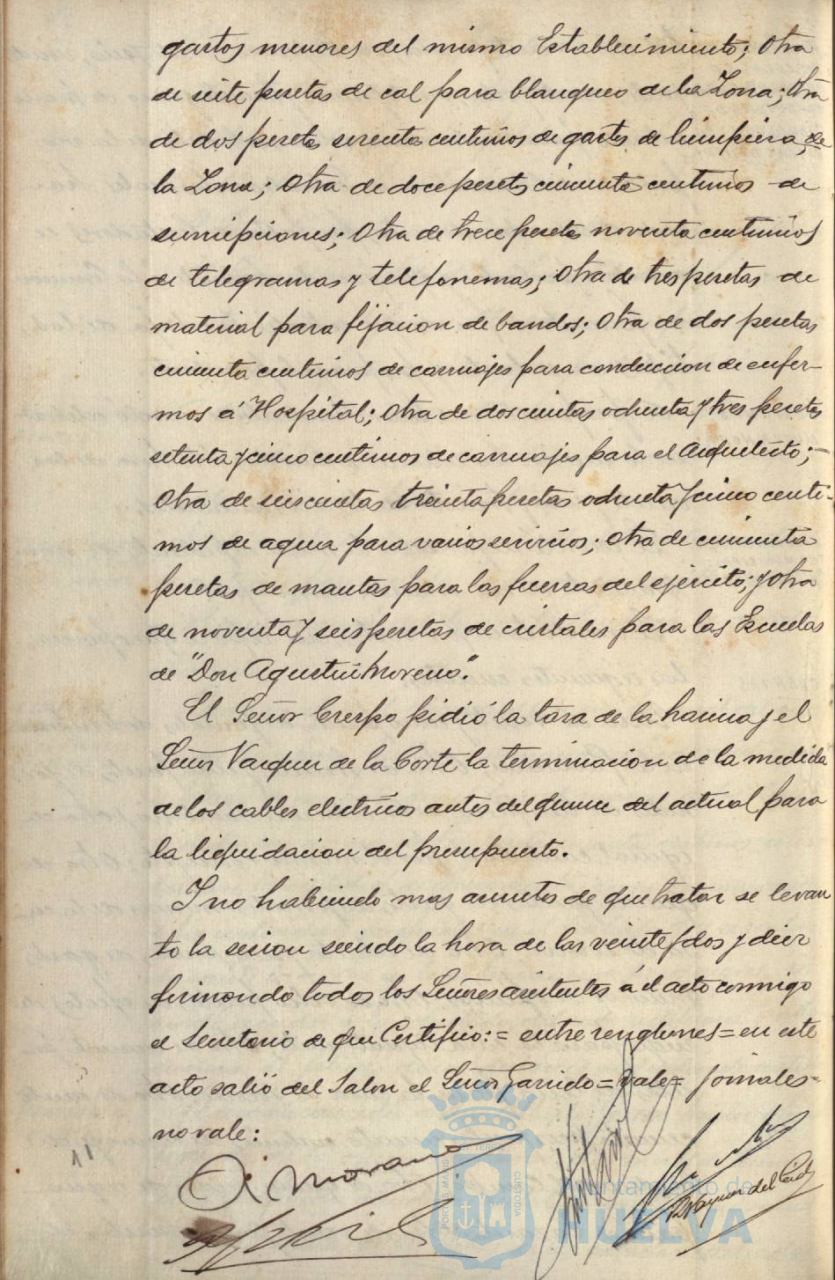 gastos menores del mismo Establecimiento; Otra
de siete pesetas de cal para blanqueo de la Zona; Otra
de dos pesetas sesenta centimos de gastos de limpieza de
la Zona; Otra de doce pesetas cincuenta centimos de
suscripciones; Otra de trece pesetas noventa centimos
de telegramas y telefonemas; Otra de tres pesetas de
material para fijacion de bandos; Otra de dos pesetas
cincuenta centimos de carruajes para conduccion de enfer-
mos á Hospital; Otra de doscientas ochenta y tres pesetas
setenta y cinco centimos de carruajes para el Arquitecto;-
Otra de seiscientas treinta pesetas ochenta y cinco centi-
mos de agua para varios servicios; Otra de cincuenta
pesetas de mantas para las fuerzas del ejército; y Otra
de noventa y seis pesetas de cristales para las Escuelas
de "Don Agustin Moreno".
El Señor Crespo pidió la tasa de la harina y el
Señor Vazquez de la Corte la terminacion de la medida
de los cables electricos antes del quince del actual para
la liquidacion del presupuesto.
Y no habiendo mas asuntos de que tratar se levan
to la sesion siendo la hora de las veinte y dos y diez
firmando todos los Señores asistentes á el acto conmigo
el Secretario de que Certifico:= entre renglones = en este
acto salió del Salon el Señor Garrido = vale = jornales =
no vale:
11
A. Moreno
Vazquez del Cid
Ayuntamiento de
HUELVA